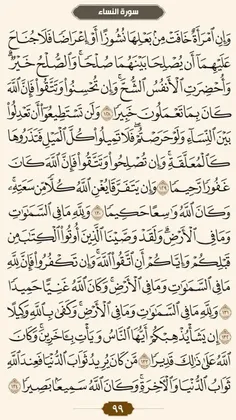 سورة النساء
وَإِنِ ٱمْرَأَةٌ خَافَتْ مِنۢ بَعْلِهَا نُشُوزًا أَوْ إِعْرَاضًا فَلَا جُنَاحَ
عَلَيْهِمَآ أَن يُصْلِحَا بَيْنَهُمَا صُلْحًا ۚ وَٱلصُّلْحُ خَيْرٌ ۗ
وَأُحْضِرَتِ ٱلْأَنفُسُ ٱلشُّحَّ ۚ وَإِن تُحْسِنُوا۟ وَتَتَّقُوا۟ فَإِنَّ ٱللَّهَ
كَانَ بِمَا تَعْمَلُونَ خَبِيرًا ١٢٨ وَلَن تَسْتَطِيعُوٓا۟ أَن تَعْدِلُوا۟
بَيْنَ ٱلنِّسَآءِ وَلَوْ حَرَصْتُمْ ۖ فَلَا تَمِيلُوا۟ كُلَّ ٱلْمَيْلِ فَتَذَرُوهَا
كَٱلْمُعَلَّقَةِ ۚ وَإِن تُصْلِحُوا۟ وَتَتَّقُوا۟ فَإِنَّ ٱللَّهَ كَانَ
غَفُورًا رَّحِيمًا ١٢٩ وَإِن يَتَفَرَّقَا يُغْنِ ٱللَّهُ كُلًّا مِّن سَعَتِهِۦ ۚ
وَكَانَ ٱللَّهُ وَٰسِعًا حَكِيمًا ١٣٠ وَلِلَّهِ مَا فِى ٱلسَّمَٰوَٰتِ
وَمَا فِى ٱلْأَرْضِ ۗ وَلَقَدْ وَصَّيْنَا ٱلَّذِينَ أُوتُوا۟ ٱلْكِتَٰبَ مِن
قَبْلِكُمْ وَإِيَّاكُمْ أَنِ ٱتَّقُوا۟ ٱللَّهَ ۚ وَإِن تَكْفُرُوا۟ فَإِنَّ لِلَّهِ
مَا فِى ٱلسَّمَٰوَٰتِ وَمَا فِى ٱلْأَرْضِ ۚ وَكَانَ ٱللَّهُ غَنِيًّا حَمِيدًا
١٣١ وَلِلَّهِ مَا فِى ٱلسَّمَٰوَٰتِ وَمَا فِى ٱلْأَرْضِ ۚ وَكَفَىٰ بِٱللَّهِ وَكِيلًا
١٣٢ إِن يَشَأْ يُذْهِبْكُمْ أَيُّهَا ٱلنَّاسُ وَيَأْتِ بِـَٔاخَرِينَ ۚ وَكَانَ
ٱللَّهُ عَلَىٰ ذَٰلِكَ قَدِيرًا ١٣٣ مَّن كَانَ يُرِيدُ ثَوَابَ ٱلدُّنْيَا فَعِندَ ٱللَّهِ
ثَوَابُ ٱلدُّنْيَا وَٱلْـَٔاخِرَةِ ۚ وَكَانَ ٱللَّهُ سَمِيعًۢا بَصِيرًا ١٣٤
٩٩